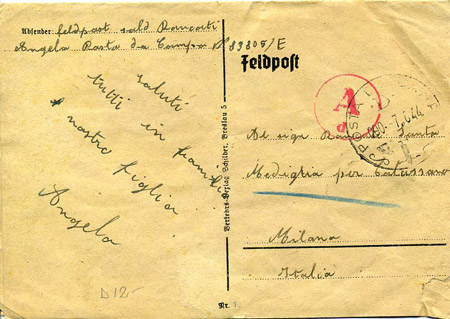 Absender: feldpost sald Rancati
Angelo Posta da Campo N 83805/E
saluti
tutti in famiglia
nostro figlio
Angelo
D 12.-
Verkehrs-Verlag Schilder, Breslau 5
Feldpost
A
Al sign Santa
Mediglia per Colturano
Milano
Italia
Nr.